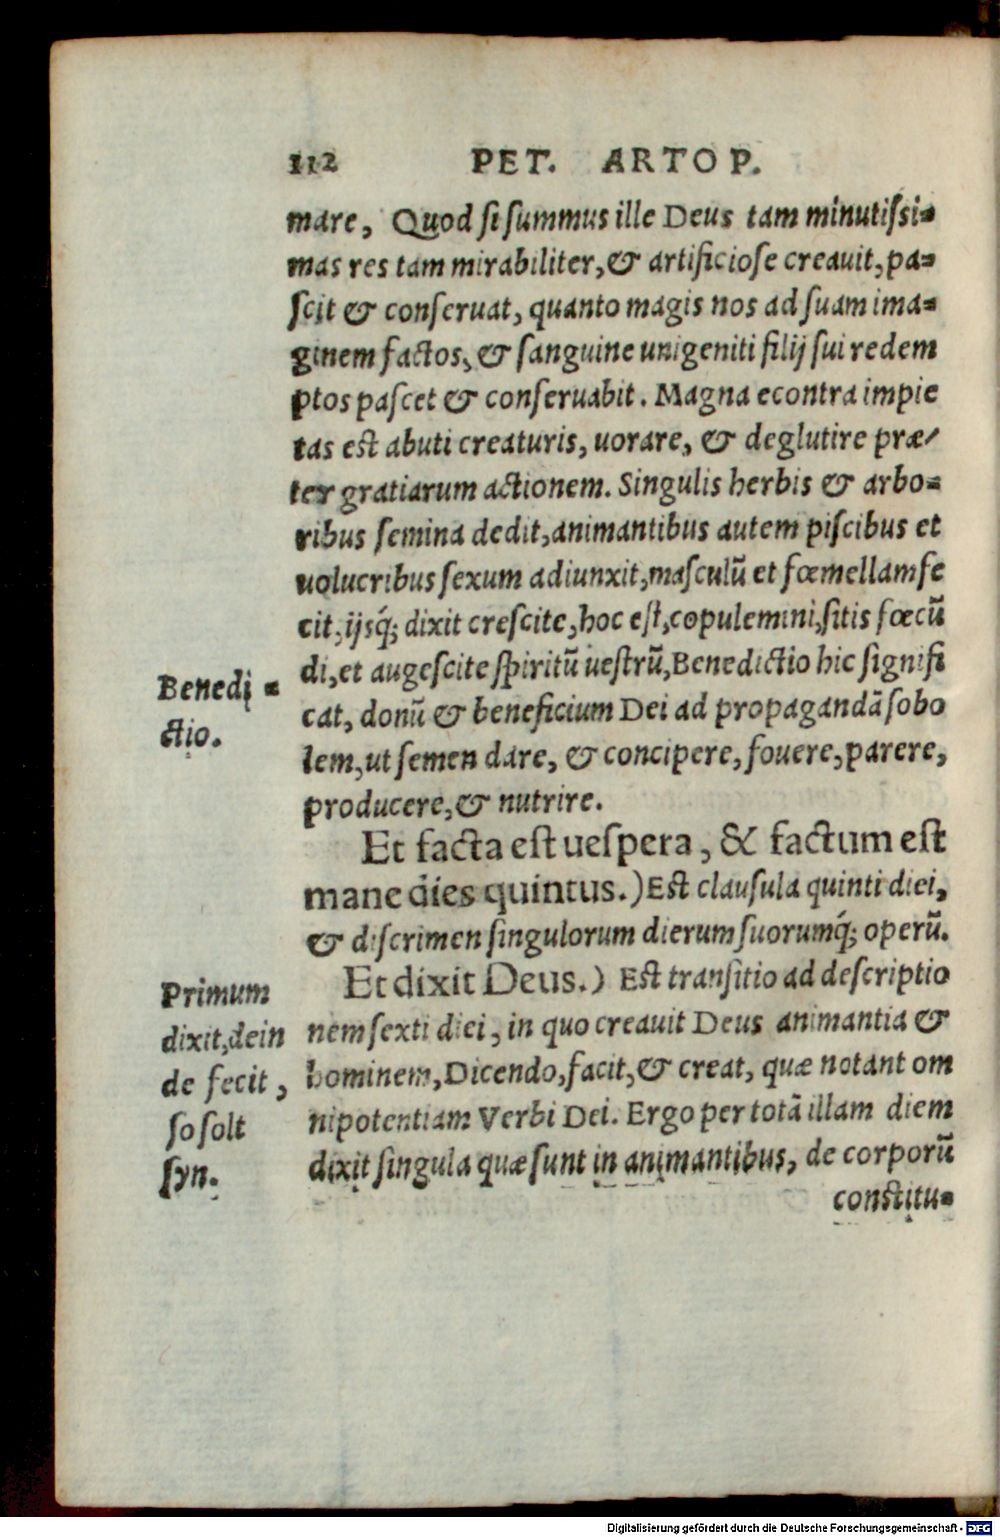 112 PET. ARTOP.
mare, Quod si summus ille Deus tam minutißi-
mas res tam mirabiliter, & artificiose creauit, pa-
scit & conseruat, quanto magis nos ad suam ima-
ginem factos, & sanguine unigeniti filij sui redem
ptos pascet & conseruabit. Magna econtra impie
tas est abuti creaturis, uorare, & deglutire præ-
ter gratiarum actionem. Singulis herbis & arbo-
ribus semina dedit, animantibus autem piscibus et
uolucribus sexum adiunxit, masculũ et fœmellam fe
cit, ijsq́; dixit crescite, hoc est, copulemini, sitis fœcũ
di, et augescite spiritũ uestrũ, Benedictio hic signifi
cat, donũ & beneficium Dei ad propagandã sobo
lem, ut semen dare, & concipere, fouere, parere,
producere, & nutrire.
Benedi-
ctio.
Et facta est uespera, & factum est
mane dies quintus.) Est clausula quinti diei,
& discrimen singulorum dierum suorumq́; operũ.
Et dixit Deus.) Est transitio ad descriptio
nem sexti diei, in quo creauit Deus animantia &
hominem, Dicendo, facit, & creat, quæ notant om
nipotentiam Verbi Dei. Ergo per totã illam diem
dixit singula quæ sunt in animantibus, de corporũ
constitu-
Primum
dixit, dein
de fecit,
so solt
syn.
Digitalisierung gefördert durch die Deutsche Forschungsgemeinschaft - DFG